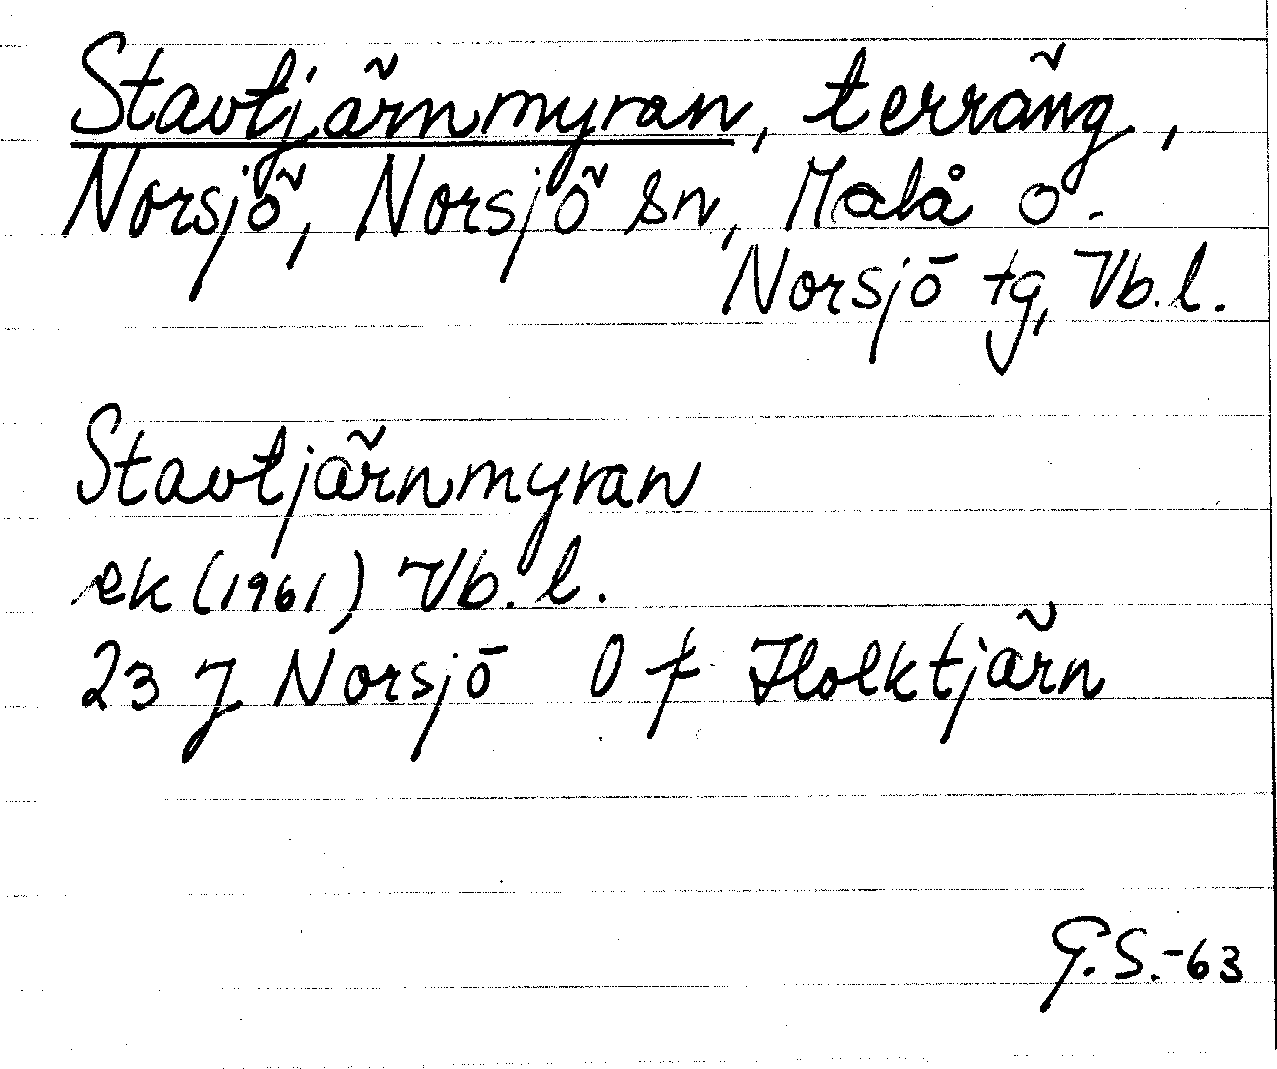 Stavtjärnmyran, terräng,
Norsjö, Norsjö sn, Malå o.
Norsjö tg, Vb.l.
Stavtjärnmyran
ek (1961) Vb.l.
23 J Norsjö O f Holktjärn
G.S.-63